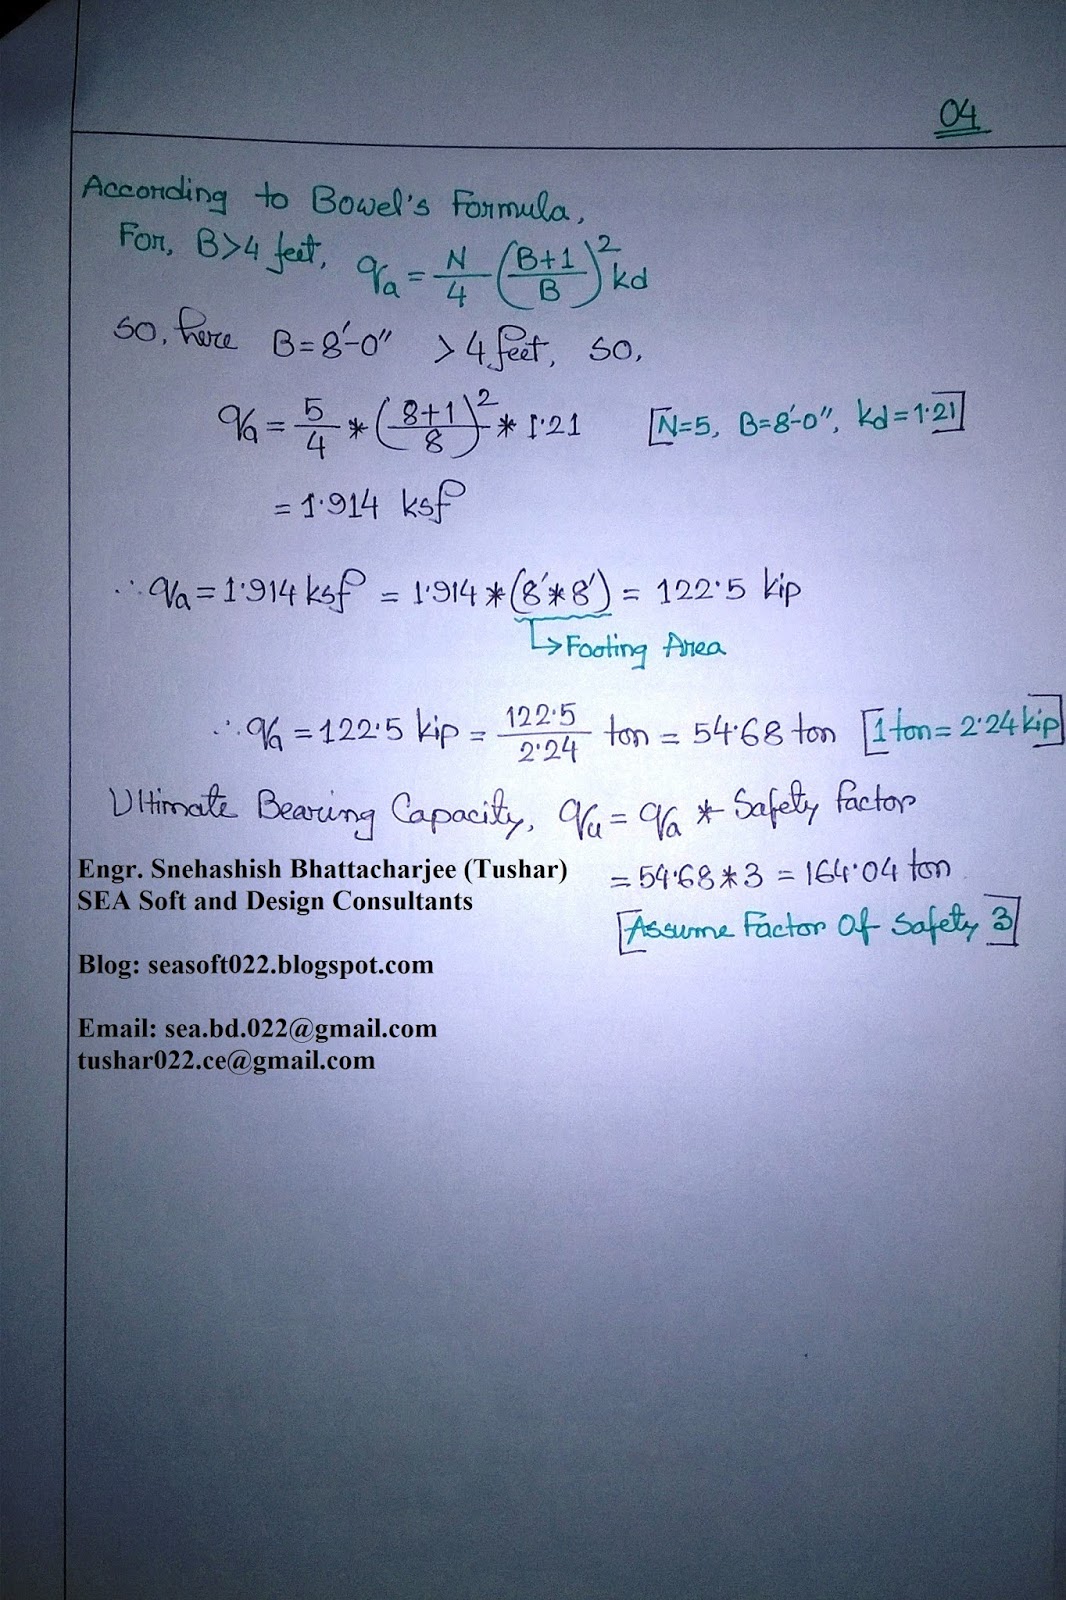 04
According to Bowel's Formula,
For, B>4 feet, qa = N/4 ((B+1)/B)² kd
so, here B=8'-0" >4 feet, so,
qa = 5/4 * ((8+1)/8)² * 1.21 [N=5, B=8'-0", kd=1.21]
= 1.914 ksf
∴ qa = 1.914 ksf = 1.914 * (8'*8') = 122.5 kip
↳Footing Area
∴ qa = 122.5 kip = 122.5/2.24 ton = 54.68 ton [1 ton = 2.24 kip]
Ultimate Bearing Capacity, qu = qa * Safety factor
= 54.68*3 = 164.04 ton
[Assume Factor Of Safety 3]
Engr. Snehashish Bhattacharjee (Tushar)
SEA Soft and Design Consultants
Blog: seasoft022.blogspot.com
Email: sea.bd.022@gmail.com
tushar022.ce@gmail.com